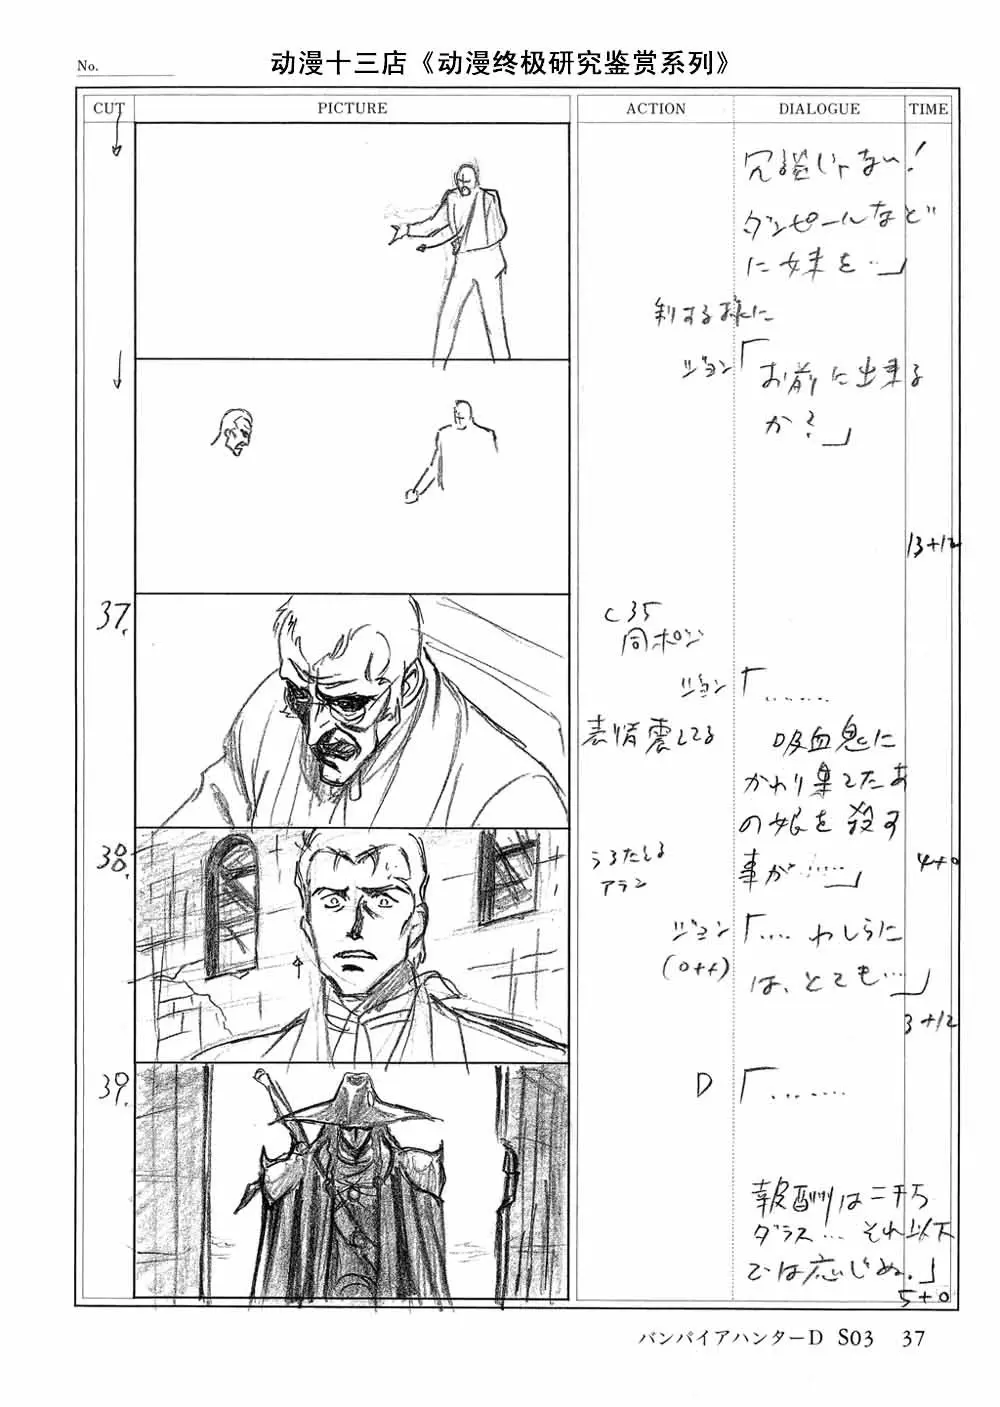 No.
动漫十三店《动漫终极研究鉴赏系列》
CUT PICTURE ACTION DIALOGUE TIME
冗談じゃない!
ダンピールなど
に妹を…」
制する様に
ジョン「お前に出来る
か?」
13+12
37.
C35
同ポジ
ジョン「……
表情震してる
吸血鬼に
かわり果てたあ
の娘を殺す
事が……」
4+0
38.
うろたえる
アラン
ジョン「…. わしらに
(off)
は、とても…」
3+12
39.
D「……
報酬は二千5
ダラス… それ以下
では応じぬ。」
5+0
バンパイアハンターD S03 37